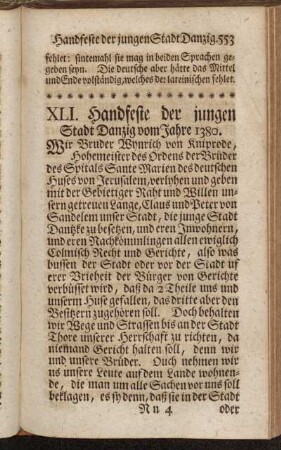 Handfeste der jungen Stadt Danzig. 553
fehlet: sintemahl sie mag in beiden Sprachen ge-
geben seyn. Die deutsche aber hätte das Mittel
und Ende volständig, welches der lateinischen fehlet.
XLI. Handfeste der jungen
Stadt Danzig vom Jahre 1380.
Wir Bruder Wynrich von Kniprode,
Hohemeister des Ordens der Brüder
des Spitals Sante Marien des deutschen
Huses von Jerusalem, verlyhen und geben
mit der Gebiettiger Raht und Willen un-
sern getreuen Lange, Claus und Peter von
Sandelem unser Stadt, die junge Stadt
Dantzke zu besetzen, und eren Inwohnern,
und eren Nachkömmlingen allen ewiglich
Colmisch Recht und Gerichte, also was
bussen der Stadt oder vor der Stadt uf
erer Vrieheit der Bürger von Gerichte
verbüsset wird, daß da 2 Theile uns und
unserm Huse gefallen, das dritte aber den
Besitzern zugehören soll. Doch behalten
wir Wege und Strassen bis an der Stadt
Thore unserer Herrschaft zu richten, da
niemand Gericht halten soll, denn wir
und unsere Brüder. Ouch nehmen wir
us unsere Leute auf dem Lande wohnen-
de, die man um alle Sachen vor uns soll
beklagen, es sy denn, daß sie in der Stadt
Nn 4 oder